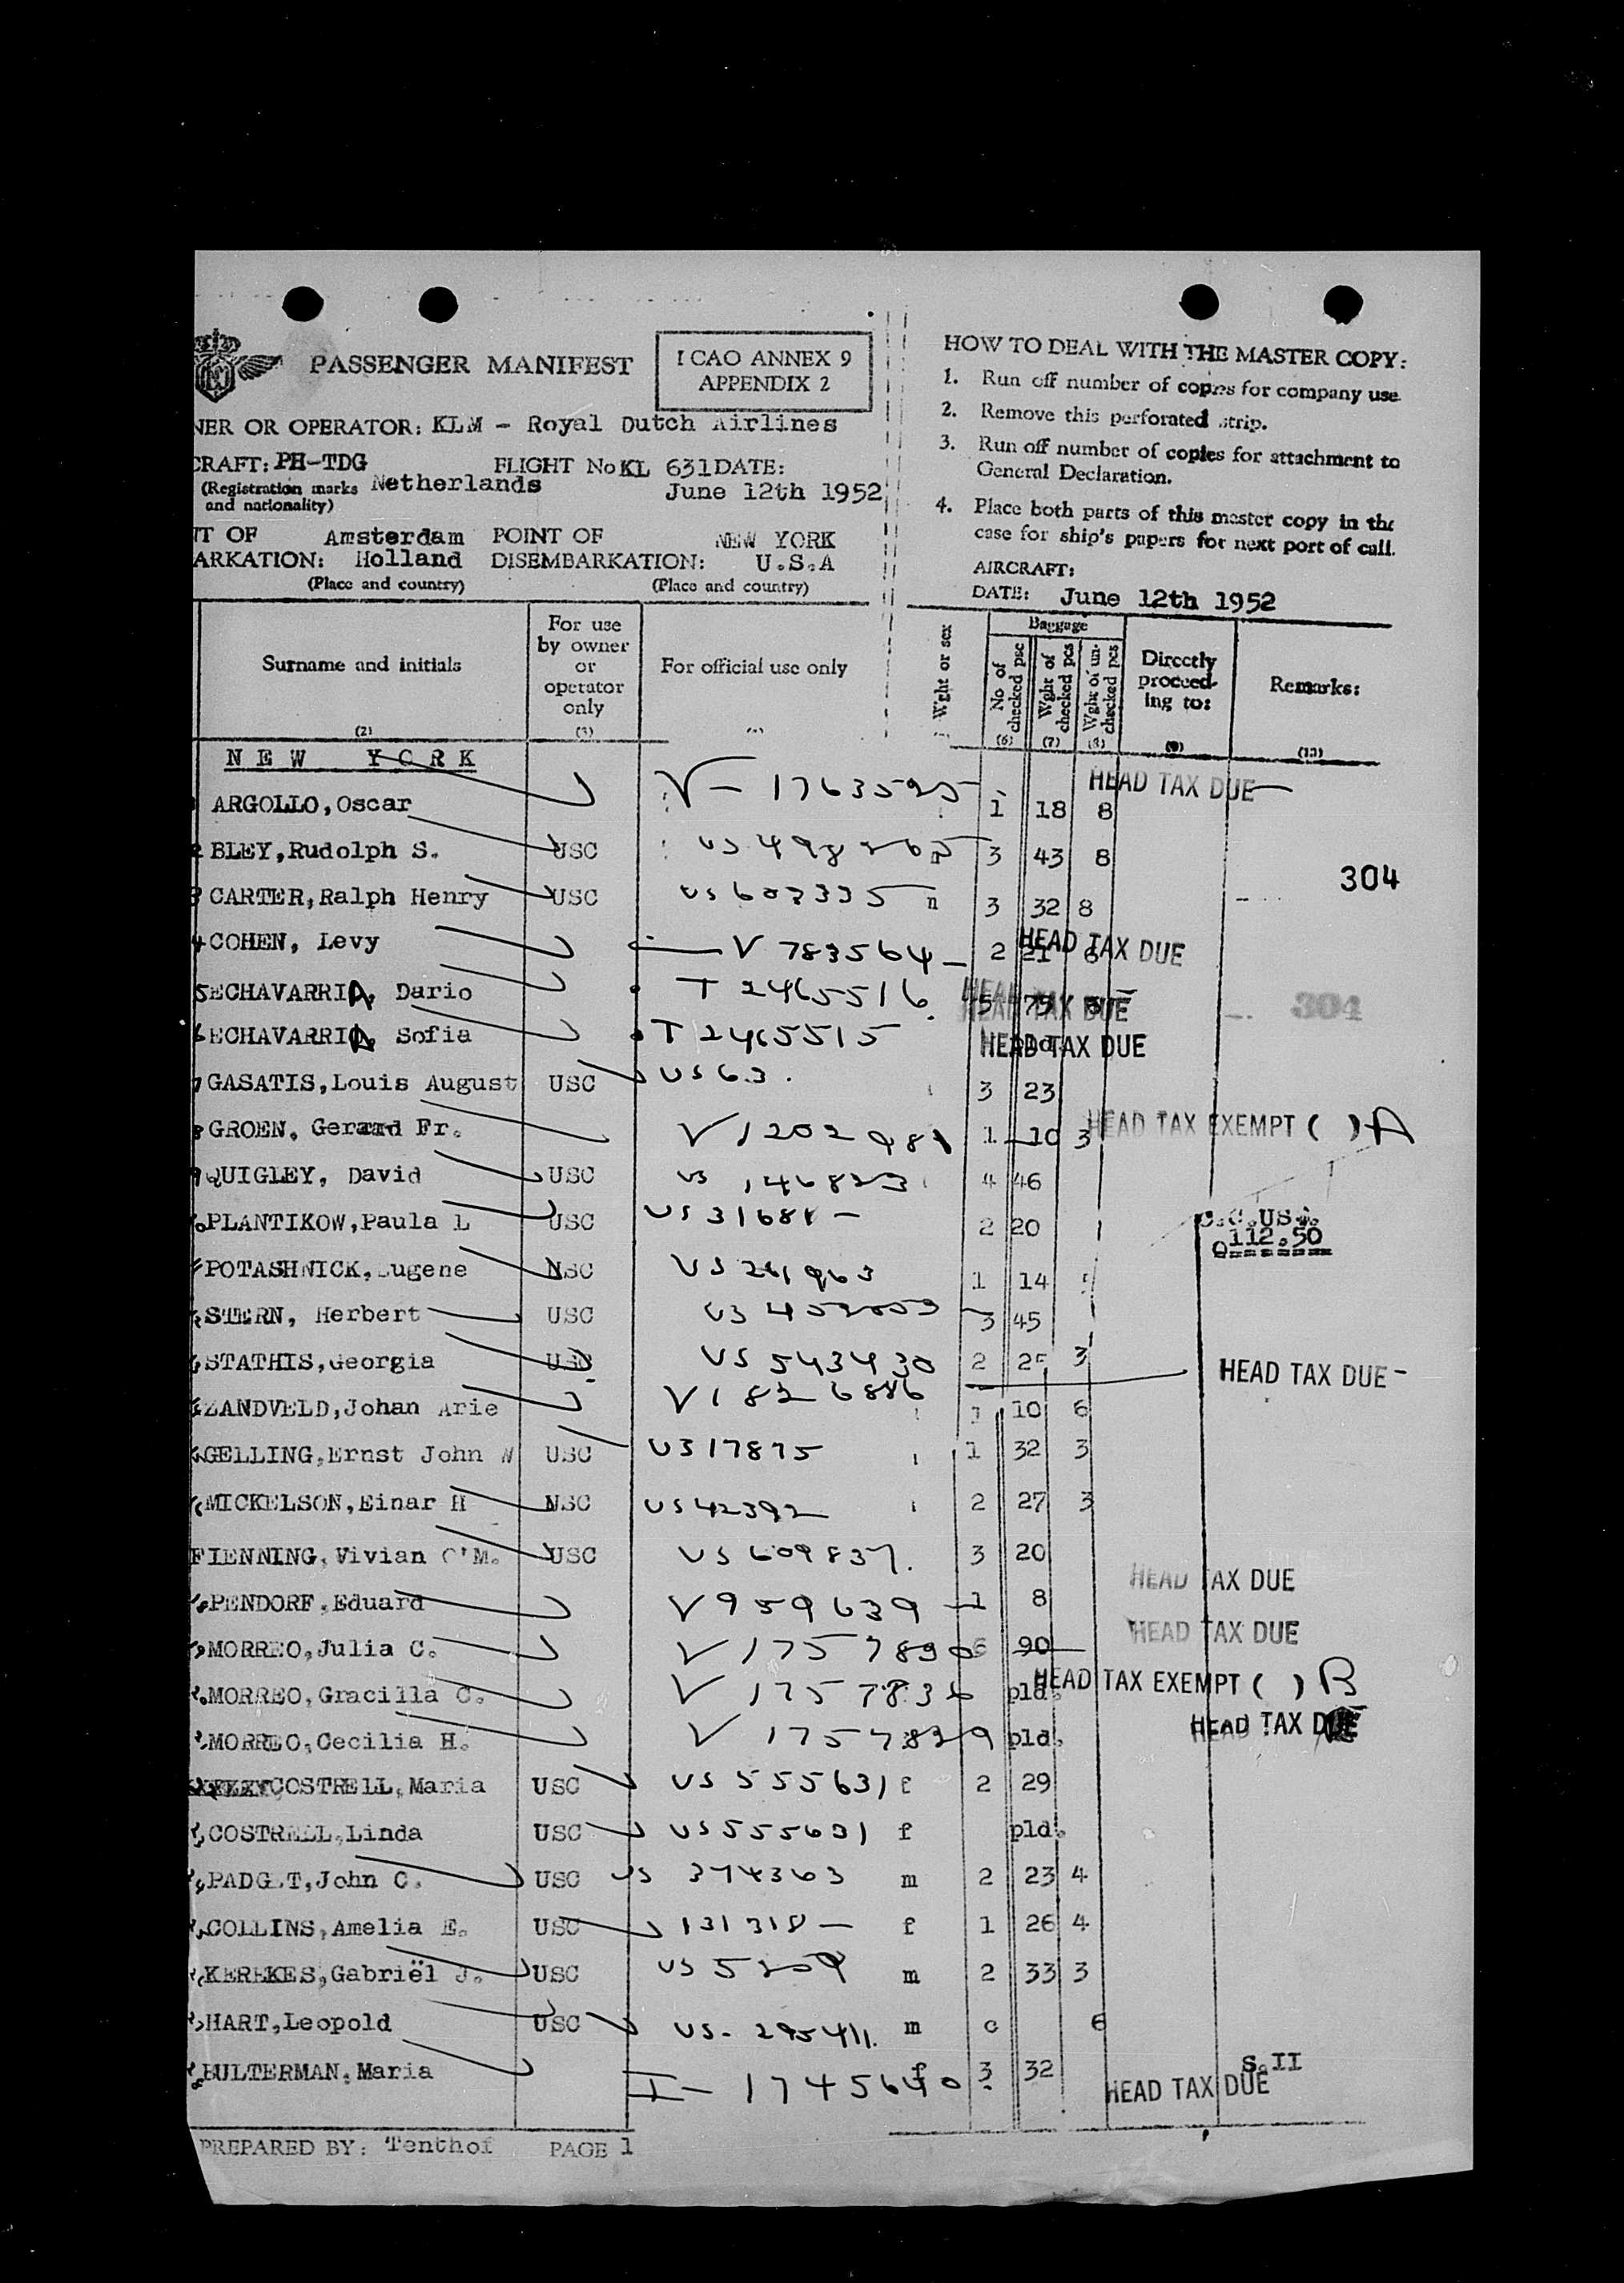 PASSENGER MANIFEST
ICAO ANNEX 9
APPENDIX 2
NER OR OPERATOR: KLM - Royal Dutch Airlines
CRAFT: PH-TDG FLIGHT No KL 631 DATE:
(Registration marks Netherlands June 12th 1952
and nationality)
NT OF Amsterdam POINT OF NEW YORK
ARKATION: Holland DISEMBARKATION: U.S.A
(Place and country) (Place and country)
HOW TO DEAL WITH THE MASTER COPY:
1. Run off number of copies for company use
2. Remove this perforated strip.
3. Run off number of copies for attachment to
General Declaration.
4. Place both parts of this master copy in the
case for ship's papers for next port of call.
AIRCRAFT:
DATE: June 12th 1952
Surname and initials (2)
For use by owner or operator only (3)
For official use only
Wght or sex
Baggage
No of checked psc (6)
Wght of checked pcs (7)
Wght of un-checked pcs (8)
Directly proceed-ing to: (9)
Remarks: (10)
NEW YORK
HEAD TAX DUE
ARGOLLO, Oscar V-1763595 1 18 8
2 BLEY, Rudolph S. USC 3 43 8
304
3 CARTER, Ralph Henry USC US 603335 3 32 8
4 COHEN, Levy V 783564 2 21 6 HEAD TAX DUE
5 ECHAVARRIA, Dario T 2465516 5 75 HEAD TAX DUE 304
6 ECHAVARRIA, Sofia T 2465515 pld. HEAD TAX DUE
7 GASATIS, Louis August USC US 63. 3 23
8 GROEN, Gerard Fr. V 1202981 1 10 3 HEAD TAX EXEMPT ( ) A
9 QUIGLEY, David USC US 146823 4 46
PLANTIKOW, Paula L USC US 31681 - 2 20
112.50
POTASHNICK, Eugene USC US 261963 1 14
STERN, Herbert USC US 3 45
STATHIS, Georgia USC US 543430 2 25 3
HEAD TAX DUE -
ZANDVELD, Johan Arie V 1826886 1 10 6
GELLING, Ernst John W USC US 17875 1 32 3
MICKELSON, Einar H USC US 42392 2 27 3
FIENNING, Vivian O'M. USC US 609837. 3 20
HEAD TAX DUE
PENDORF, Eduard V 959639 1 8
HEAD TAX DUE
MORREO, Julia C. V 1757830 6 90
HEAD TAX EXEMPT ( ) B
MORREO, Gracilla C. V 1757836 pld.
HEAD TAX DUE
MORREO, Cecilia H. V 1757829 pld.
COSTRELL, Maria USC US 555631 f 2 29
COSTRELL, Linda USC US 555631 f pld.
PADGET, John C. USC US 374363 m 2 23 4
COLLINS, Amelia E. USC 131318 - f 1 26 4
KEREKES, Gabriël J. USC US 5209 m 2 33 3
HART, Leopold USC US- 295411. m 0 6
BULTERMAN, Maria I-1745640 f 3 32 S.II
HEAD TAX DUE
PREPARED BY: Tenthof PAGE 1